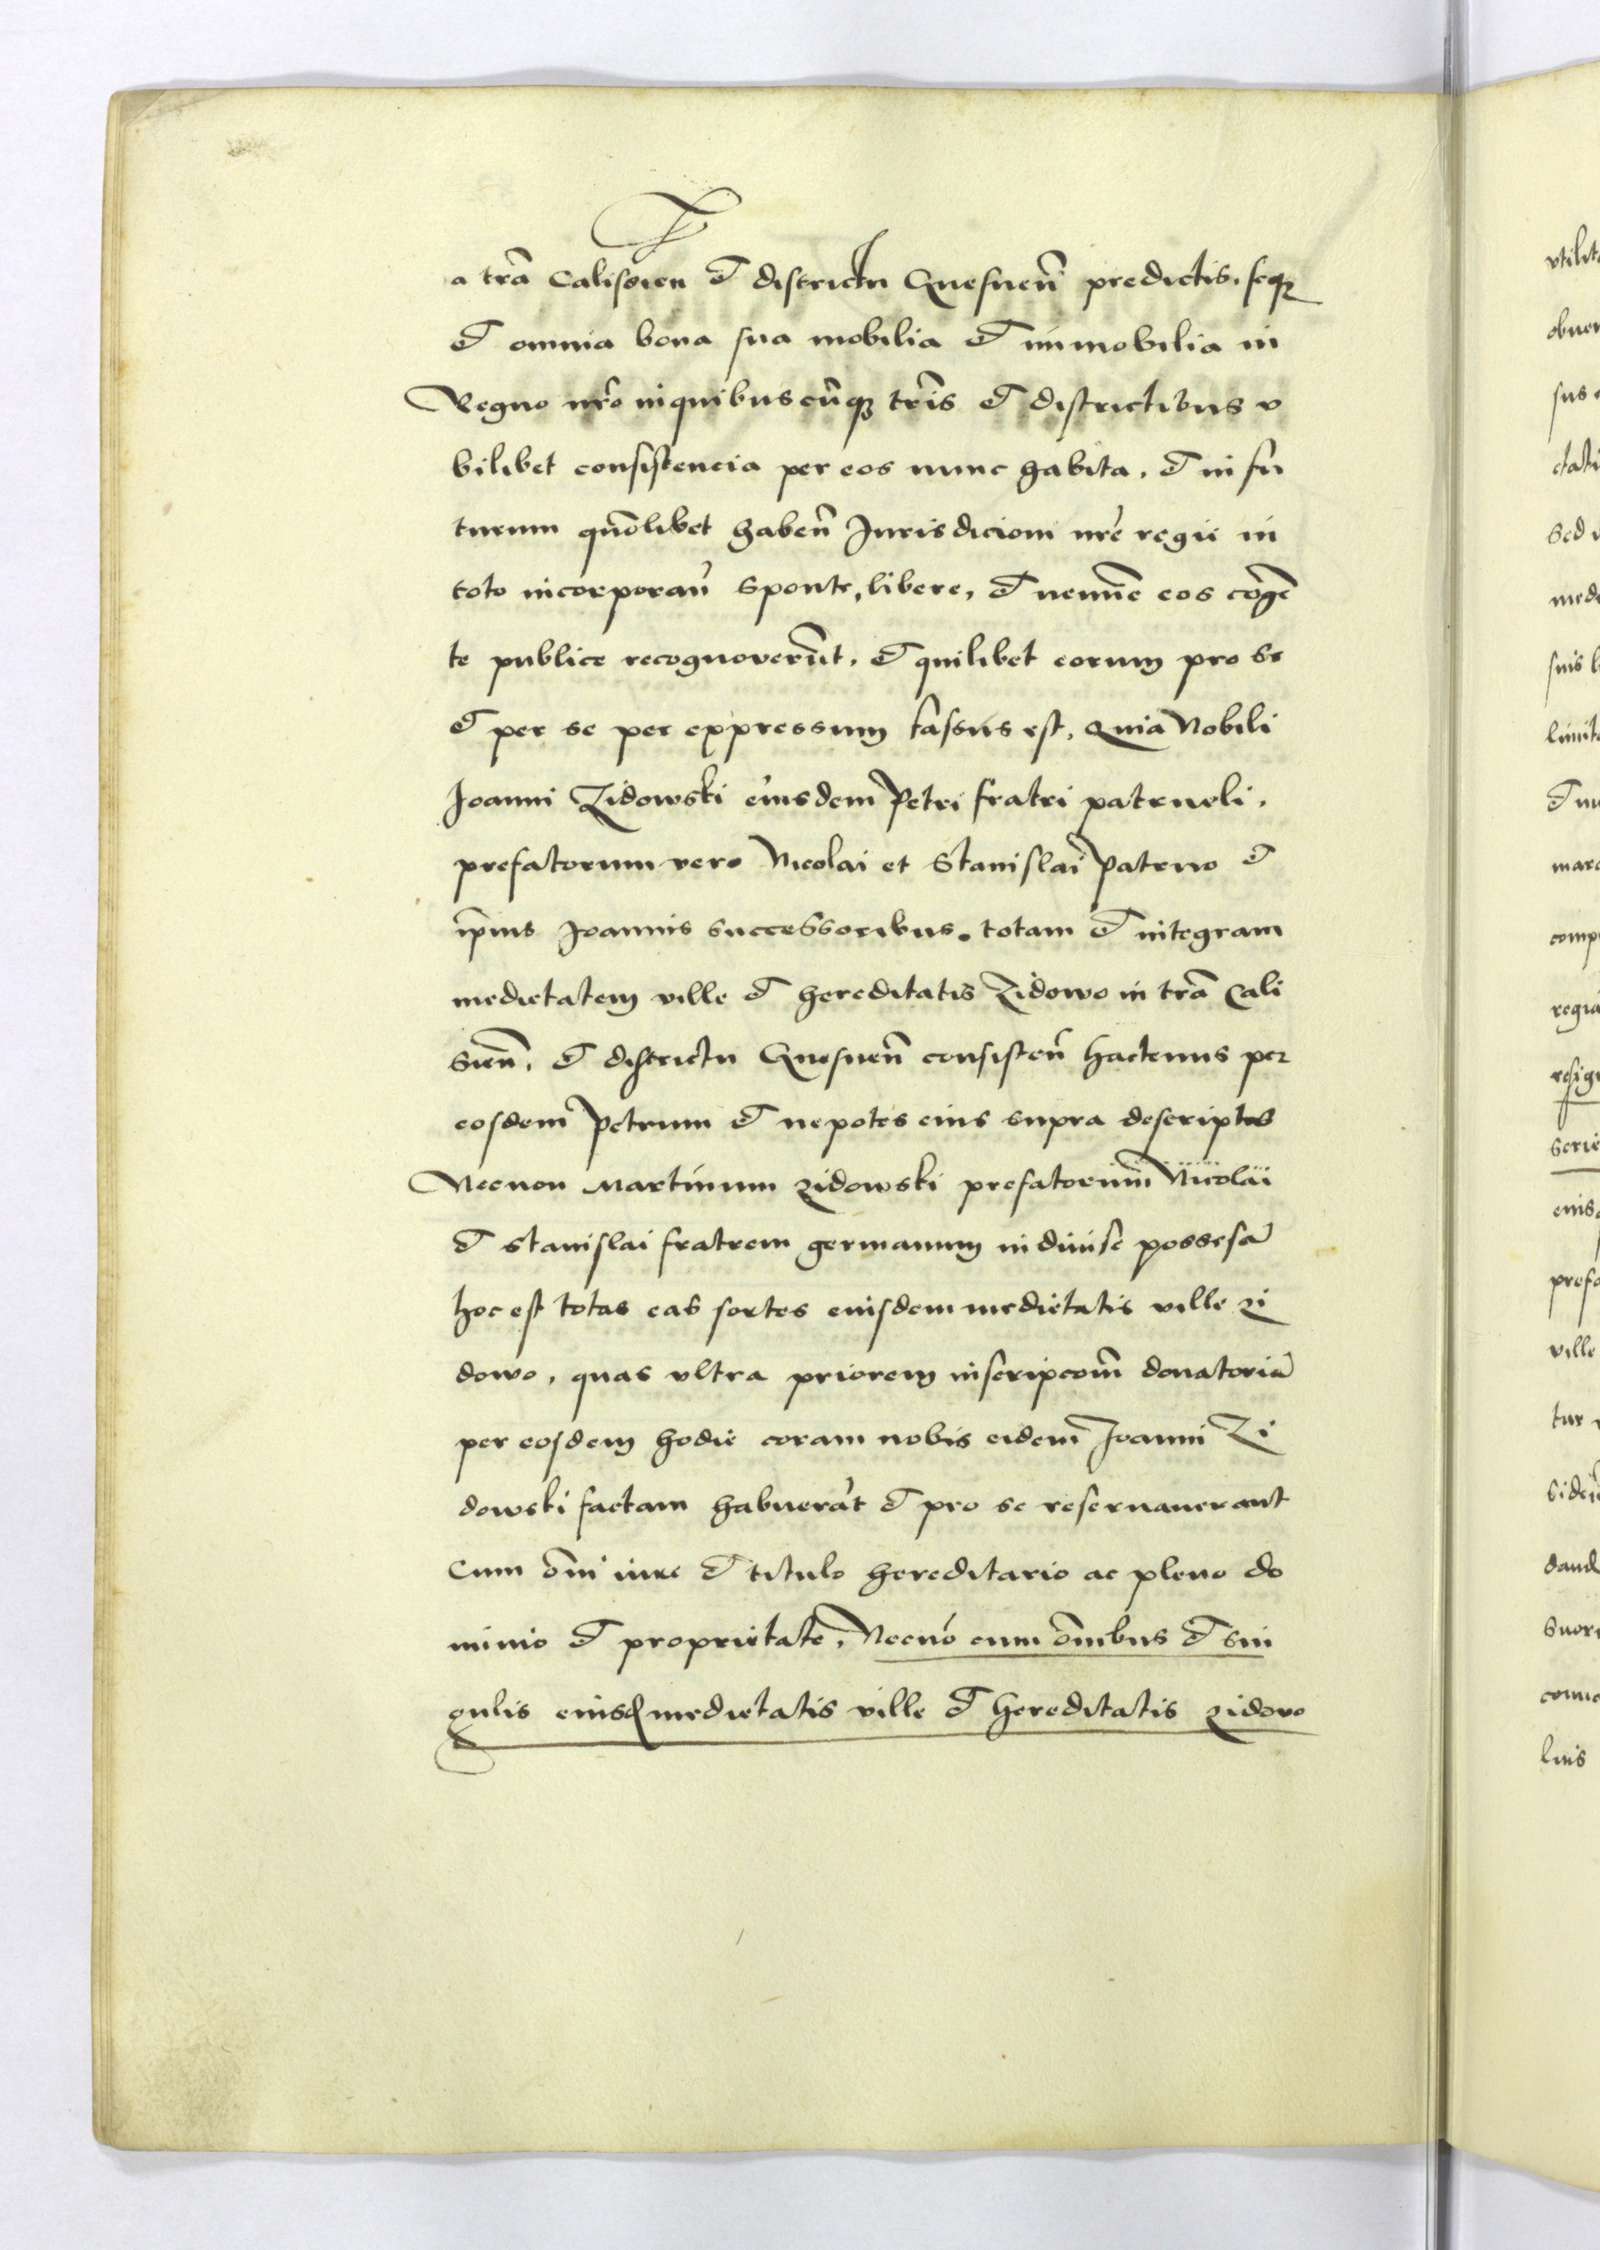 a trã Calisien et districtu Gnesnen̄ predictis, seqꝫ
et omnia bona sua mobilia et immobilia in
Regno nr̃o in quibuscũqꝫ tr̃is et districtibus v
bilibet consistencia per eos nunc habita, et in fu
turum quõlibet haben̄ Jurisdicioni nr̃e regie in
toto incorporan̄ sponte, libere, et nemĩe eos cogẽ
te publice recognoverũt, et quilibet eorum pro se
et per se per expressum fassus est, Quia Nobili
Joanni Zidowski eiusdem Petri fratri patrueli,
prefatorum vero Nicolai et Stanislai Patruo et
ip̃ius Joannis successoribus. totam et integram
medietatem ville et hereditatis Zidowo in trã Cali
sien̄, et districtu Gnesnen̄ consisten̄ hactenus per
eosdem Petrum et nepotes eius supra descriptos
Necnon Martinum Zidowski prefatorum Nicolai
et Stanislai fratrem germanum indiuise possessã
hoc est totas eas sortes eiusdem medietatis ville Zi
dowo, quas vltra priorem inscripcom̃ donatoriã
per eosdem hodie coram nobis eidem Joanni Zi
dowski factam habuerãt et pro se reseruauerant
Cum õni iure et titulo hereditario ac pleno do
minio et proprietate, Necnõ cum õnibus et sin
gulis eiusd medietatis ville et hereditatis Zidowo
vtilit
obuen
sus
ctati
Sed
med
suis
limit
et
mara
comp
regia
resig
serie
eius
prefa
ville
tur
siden
dand
suor
lius